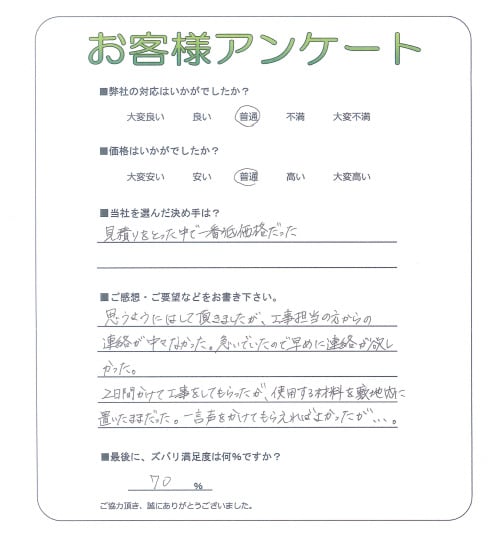 お客様アンケート
■弊社の対応はいかがでしたか？
大変良い 良い 普通 不満 大変不満
■価格はいかがでしたか？
大変安い 安い 普通 高い 大変高い
■当社を選んだ決め手は？
見積りをとった中で一番低価格だった
■ご感想・ご要望などをお書き下さい。
思うようにはして頂きましたが、工事担当の方からの
連絡が中々なかった。急いでいたので早めに連絡が欲し
かった。
2日間かけて工事をしてもらったが、使用する材料を敷地内に
置いたままだった。一言声をかけてもらえればよかったが、、、。
■最後に、ズバリ満足度は何%ですか？
70 %
ご協力頂き、誠にありがとうございました。